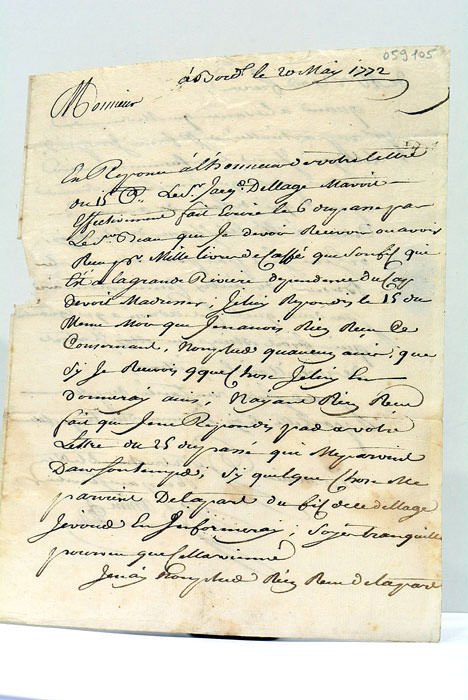 059105
à Bord.x le 20 May 1772
Monsieur
En Reponce a l'honneur de votre lettre
du 15 Ct. Le Sr. Jacq. Dellage Mavoit
Effectivement fait Ecrire le 6 du passe par
Le Sr. que Je devoir Recevoir ou avoir
Reçu pr. Mille livres de Caffé que Son fils qui
Est a la grande Riviere dependence du Cap
devoit Madresser, Je luy Repondis le 15 du
Meme Mois que Jenavois Rien Reçu Ce
Concernant, Nomplus quaucun avis, que
Sy Je Recevois qque Chose Je luy En
donneray avis, Nayant Rien Reçu
fait que Jene Repondis pas a votre
Lettre du 25 du passé qui Meparvient
Dans Son temps, Sy quelque Chose Me
parvient De la part du fils de dellage
Jevous En Informeray, Soyez tranquille
pourveu que Cella vienne
Jenay Nomplus Rien Reçu de la part